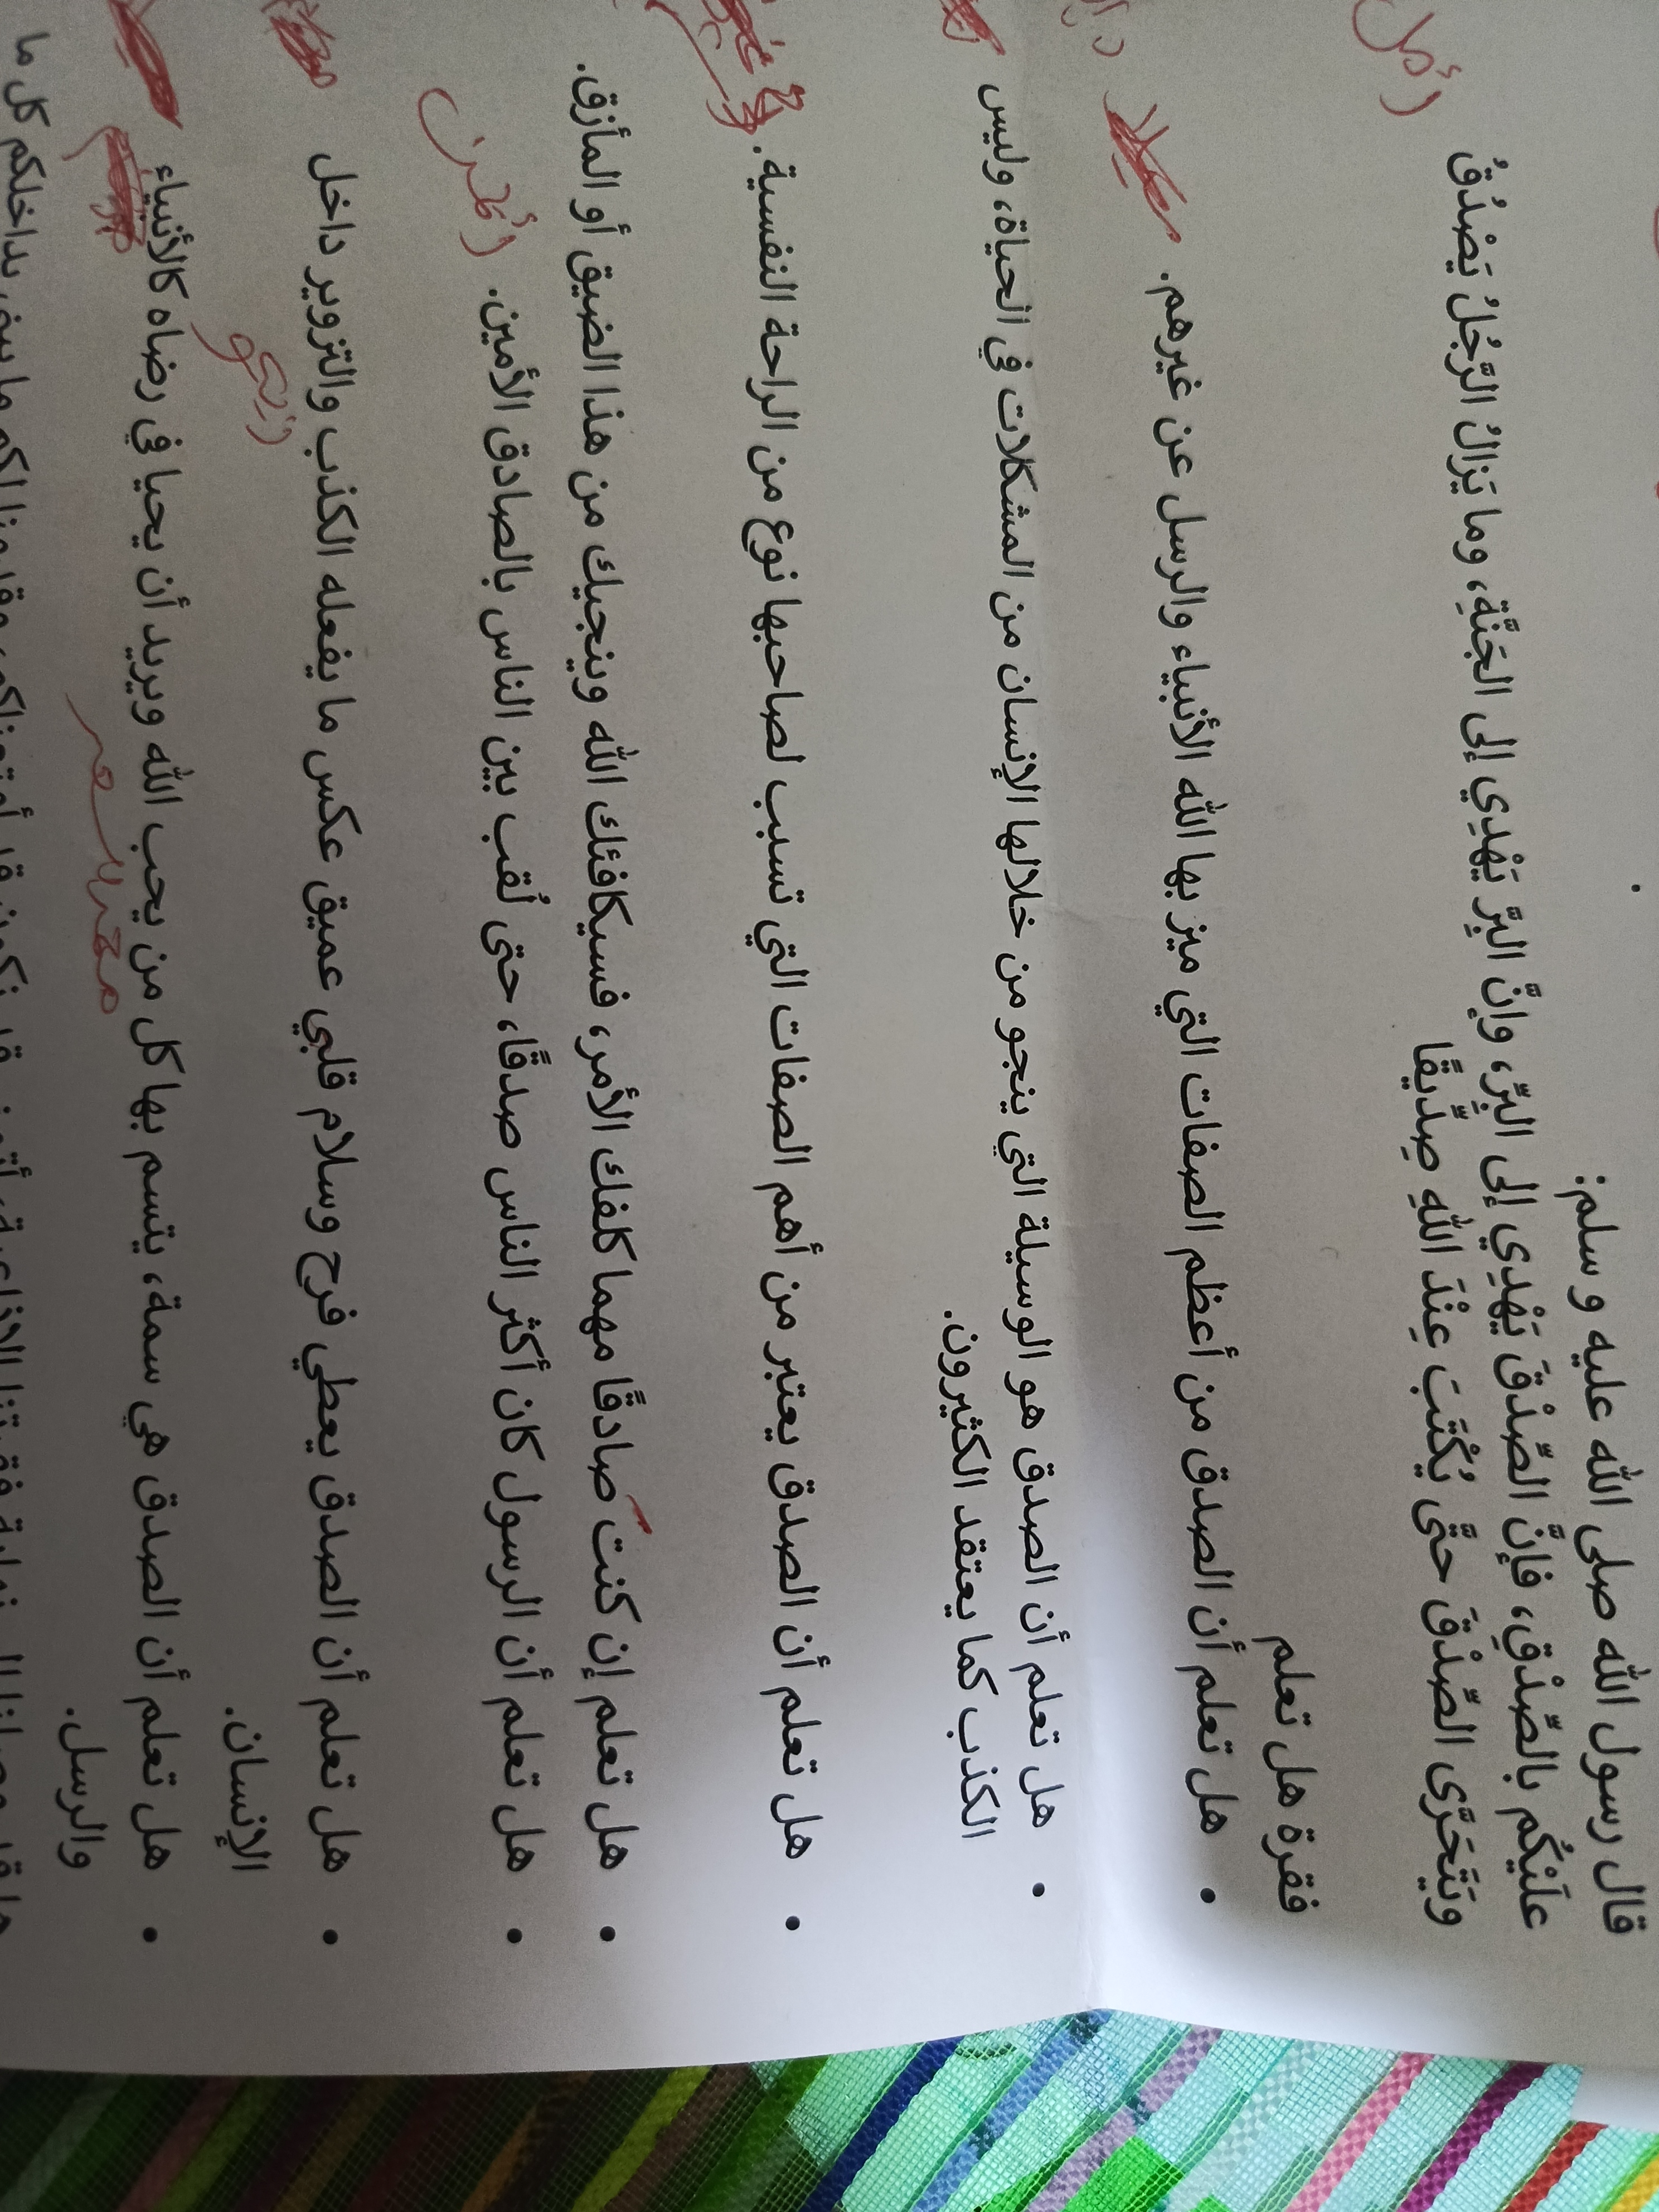 قال رسول الله صلى الله عليه وسلم:
علَيْكُم بالصِّدْقِ، فإنَّ الصِّدْقَ يَهْدِي إلى البِرِّ، وإنَّ البِرَّ يَهْدِي إلى الجَنَّةِ، وما يَزالُ الرَّجُلُ يَصْدُقُ
ويَتَحَرَّى الصِّدْقَ حتَّى يُكْتَبَ عِنْدَ اللهِ صِدِّيقًا
(أمل)
فقرة هل تعلم
• هل تعلم أن الصدق من أعظم الصفات التي ميز بها الله الأنبياء والرسل عن غيرهم.
• هل تعلم أن الصدق هو الوسيلة التي ينجو من خلالها الإنسان من المشكلات في الحياة، وليس
الكذب كما يعتقد الكثيرون.
• هل تعلم أن الصدق يعتبر من أهم الصفات التي تسبب لصاحبها نوع من الراحة النفسية.
• هل تعلم إن كنت صادقًا مهما كلفك الأمر، فسيكافئك الله وينجيك من هذا الضيق أو المأزق.
• هل تعلم أن الرسول كان أكثر الناس صدقًا، حتى لُقب بين الناس بالصادق الأمين.
• هل تعلم أن الصدق يعطي فرح وسلام قلبي عميق عكس ما يفعله الكذب والتزوير داخل
الإنسان.
• هل تعلم أن الصدق هي سمة، يتسم بها كل من يحب الله ويريد أن يحيا في رضاه كالأنبياء
والرسل.